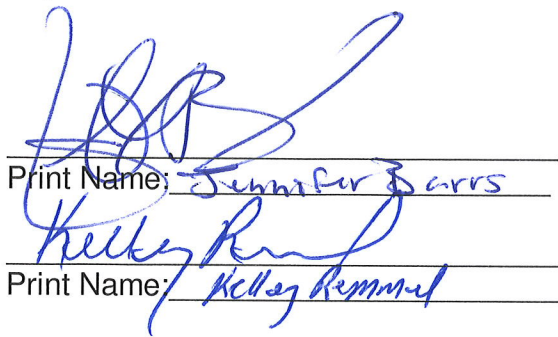 Print Name: Jennifer Barrs
Kelley R
Print Name: Kelley Remmel